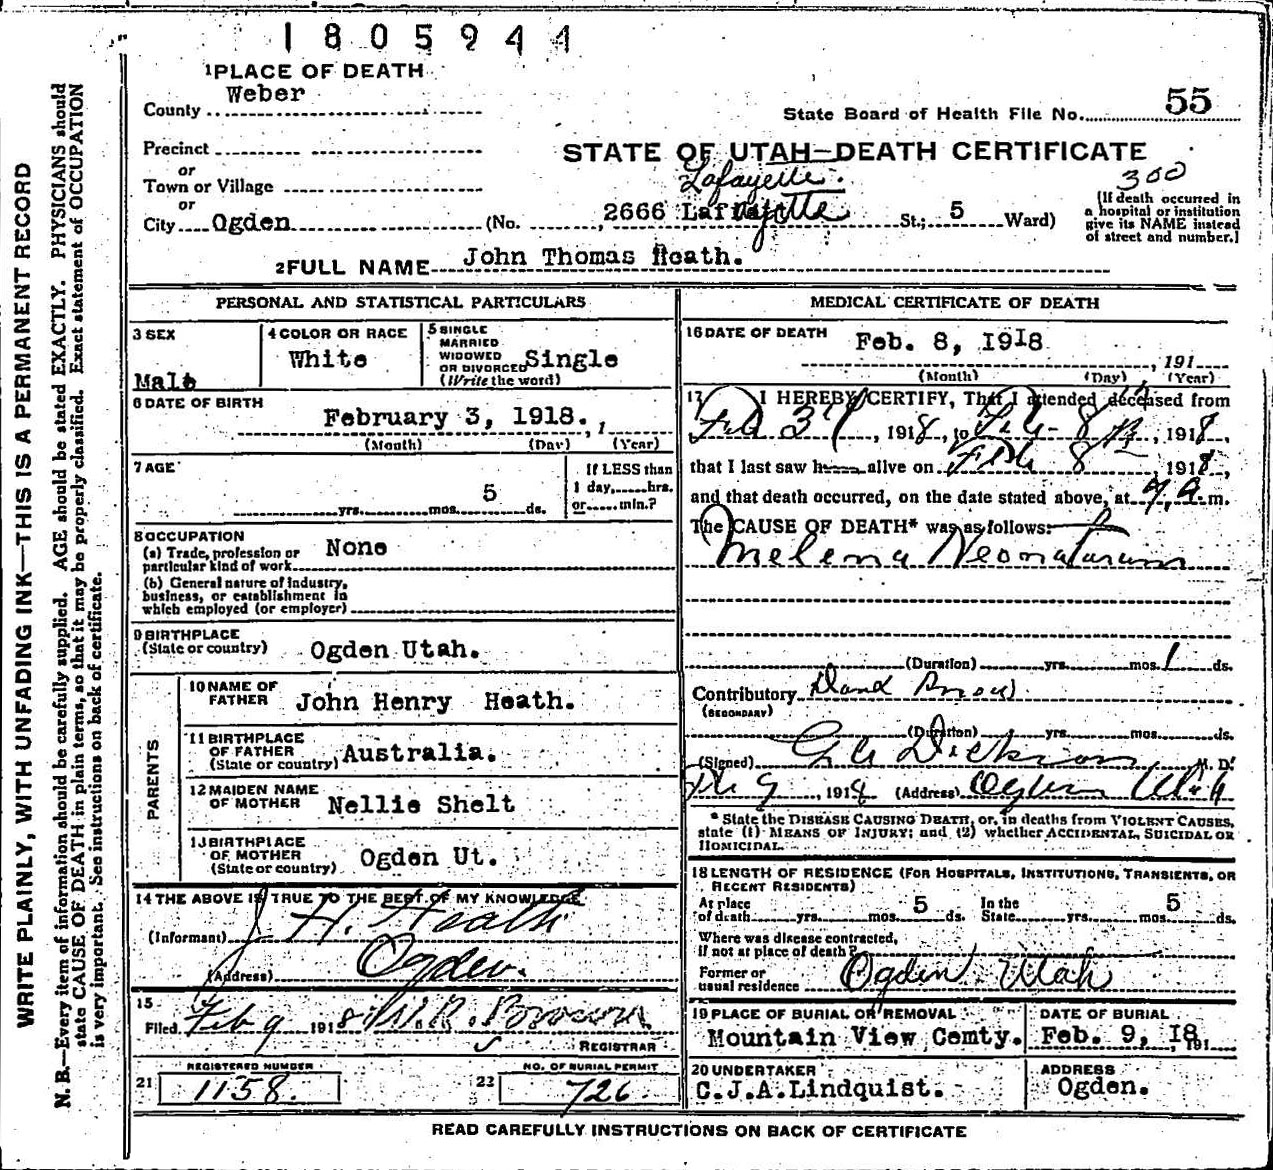 1805944
1 PLACE OF DEATH
County Weber
State Board of Health File No. 55
Precinct
or
Town or Village
or
City Ogden
STATE OF UTAH—DEATH CERTIFICATE
Lafayette.
(No. 2666 Laf yette St.; 5 Ward)
300
[If death occurred in
a hospital or institution
give its NAME instead
of street and number.]
2 FULL NAME John Thomas Heath.
PERSONAL AND STATISTICAL PARTICULARS
3 SEX
Male
4 COLOR OR RACE
White
5 SINGLE
MARRIED
WIDOWED
OR DIVORCED Single
(Write the word)
6 DATE OF BIRTH
February 3, 1918. , 1
(Month) (Day) (Year)
7 AGE
yrs. mos. 5 ds.
If LESS than
1 day, hrs.
or min.?
8 OCCUPATION
(a) Trade, profession or
particular kind of work None
(b) General nature of industry,
business, or establishment in
which employed (or employer)
9 BIRTHPLACE
(State or country) Ogden Utah.
PARENTS
10 NAME OF
FATHER John Henry Heath.
11 BIRTHPLACE
OF FATHER
(State or country) Australia.
12 MAIDEN NAME
OF MOTHER Nellie Shelt
13 BIRTHPLACE
OF MOTHER
(State or country) Ogden Ut.
14 THE ABOVE IS TRUE TO THE BEST OF MY KNOWLEDGE
(Informant) J. H. Heath
(Address) Ogden.
15
Filed Feb 9 1918 W.R. Brown
REGISTRAR
REGISTERED NUMBER
21 1158.
NO. OF BURIAL PERMIT
22 726
MEDICAL CERTIFICATE OF DEATH
16 DATE OF DEATH Feb. 8, 1918
, 191
(Month) (Day) (Year)
17 I HEREBY CERTIFY, That I attended deceased from
Feb 3rd, 1918, to Feb 8th, 1918,
that I last saw h alive on Feb 8, 1918,
and that death occurred, on the date stated above, at 7 A. m.
The CAUSE OF DEATH* was as follows:
Melena Neonatorum
(Duration) yrs. mos. 1 ds.
Contributory
(SECONDARY)
(Duration) yrs. mos. ds.
(Signed) Dickson M. D.
Feb 9, 1918 (Address) Ogden Utah
* State the DISEASE CAUSING DEATH, or, in deaths from VIOLENT CAUSES,
state (1) MEANS OF INJURY; and (2) whether ACCIDENTAL, SUICIDAL OR
HOMICIDAL.
18 LENGTH OF RESIDENCE (FOR HOSPITALS, INSTITUTIONS, TRANSIENTS, OR
RECENT RESIDENTS)
At place
of death yrs. mos. 5 ds. In the
State yrs. mos. 5 ds.
Where was disease contracted,
if not at place of death?
Former or
usual residence Ogden Utah
19 PLACE OF BURIAL OR REMOVAL
Mountain View Cemty.
DATE OF BURIAL
Feb. 9, 18 191
20 UNDERTAKER
C.J.A. Lindquist.
ADDRESS
Ogden.
READ CAREFULLY INSTRUCTIONS ON BACK OF CERTIFICATE
WRITE PLAINLY, WITH UNFADING INK—THIS IS A PERMANENT RECORD
N. B.—Every item of information should be carefully supplied. AGE should be stated EXACTLY. PHYSICIANS should
state CAUSE OF DEATH in plain terms, so that it may be properly classified. Exact statement of OCCUPATION
is very important. See instructions on back of certificate.